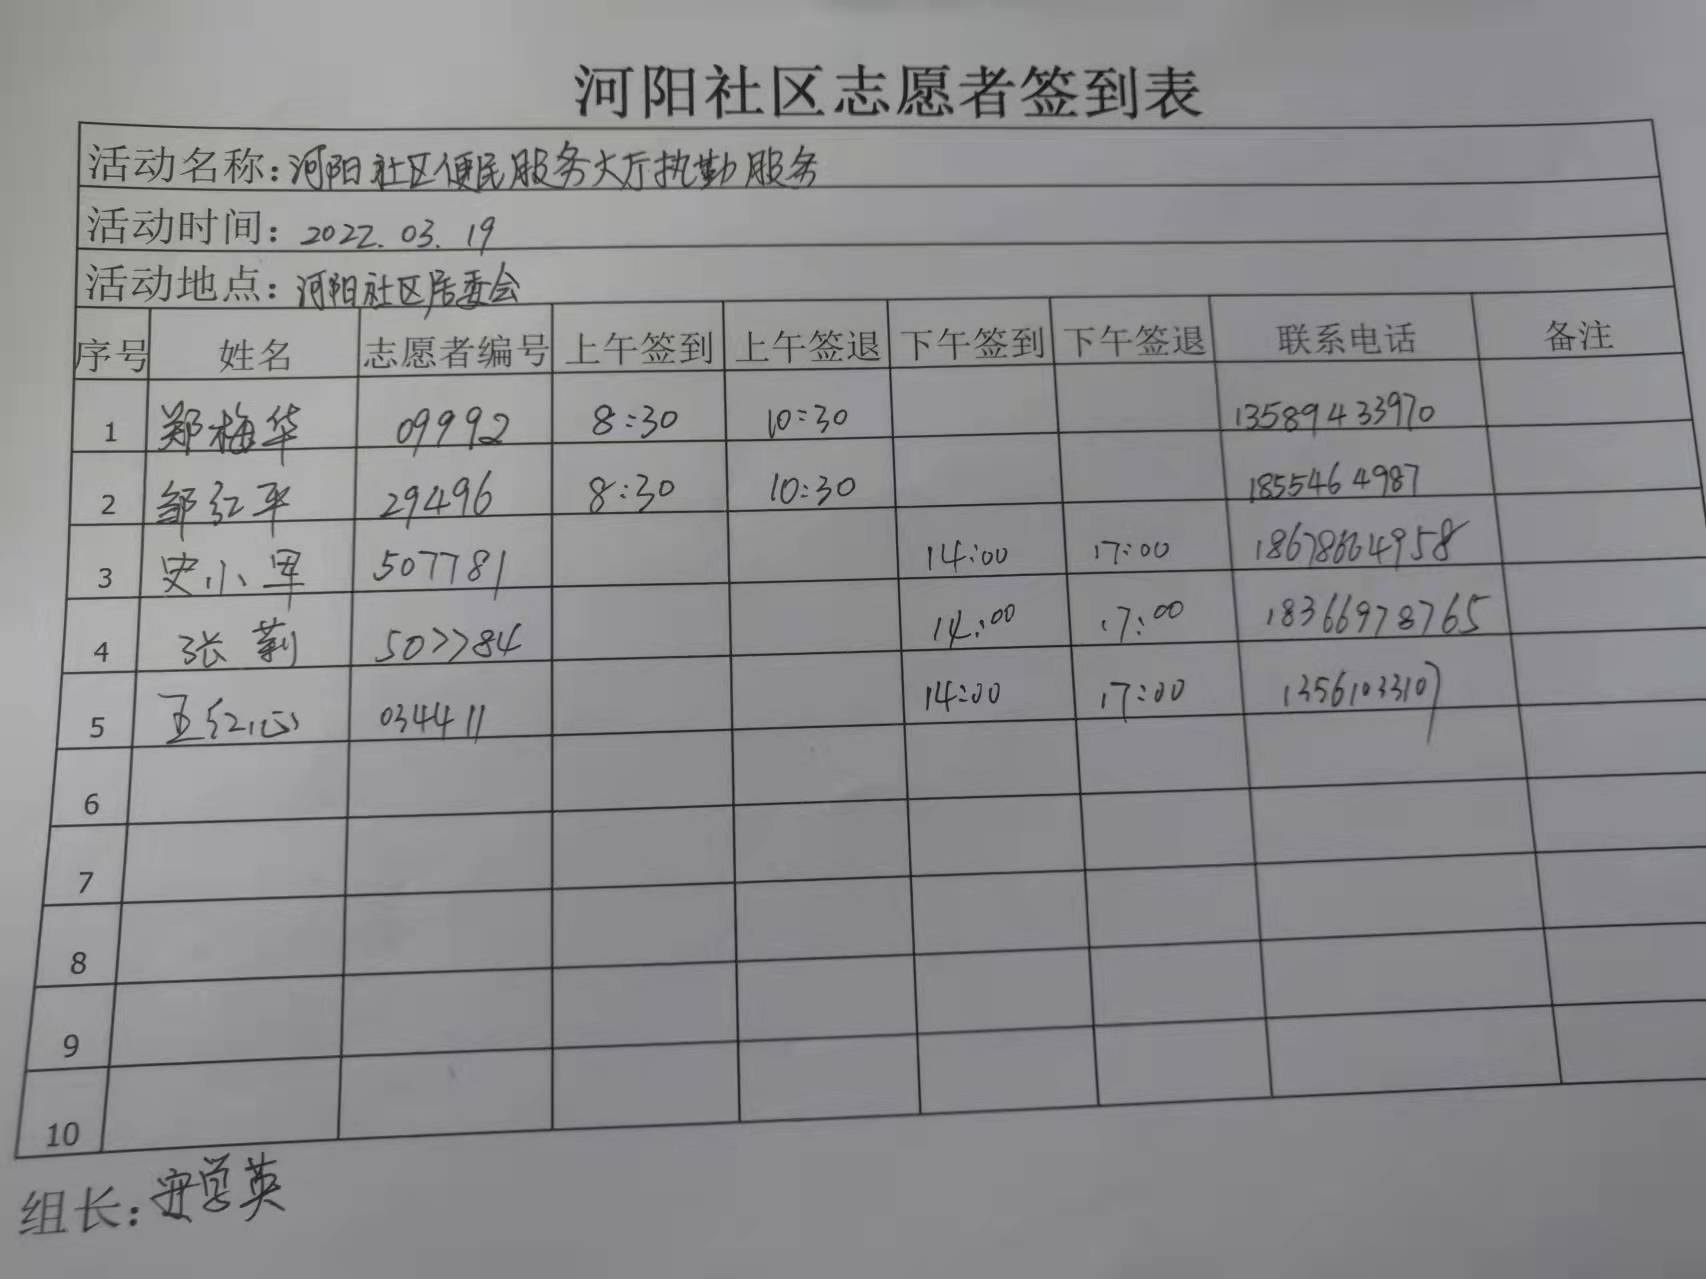 河阳社区志愿者签到表
活动名称:河阳社区便民服务大厅执勤服务
活动时间:2022.03.19
活动地点:河阳社区居委会
序号 姓名 志愿者编号 上午签到 上午签退 下午签到 下午签退 联系电话 备注
1 郑梅华 09992 8:30 10:30 13589433970
2 邹红平 29496 8:30 10:30 1855464987
3 史小军 507781 14:00 17:00 18678664958
4 张莉 507784 14:00 17:00 18366978765
5 王红心 034411 14:00 17:00 13561033107
6
7
8
9
10
组长:安学英